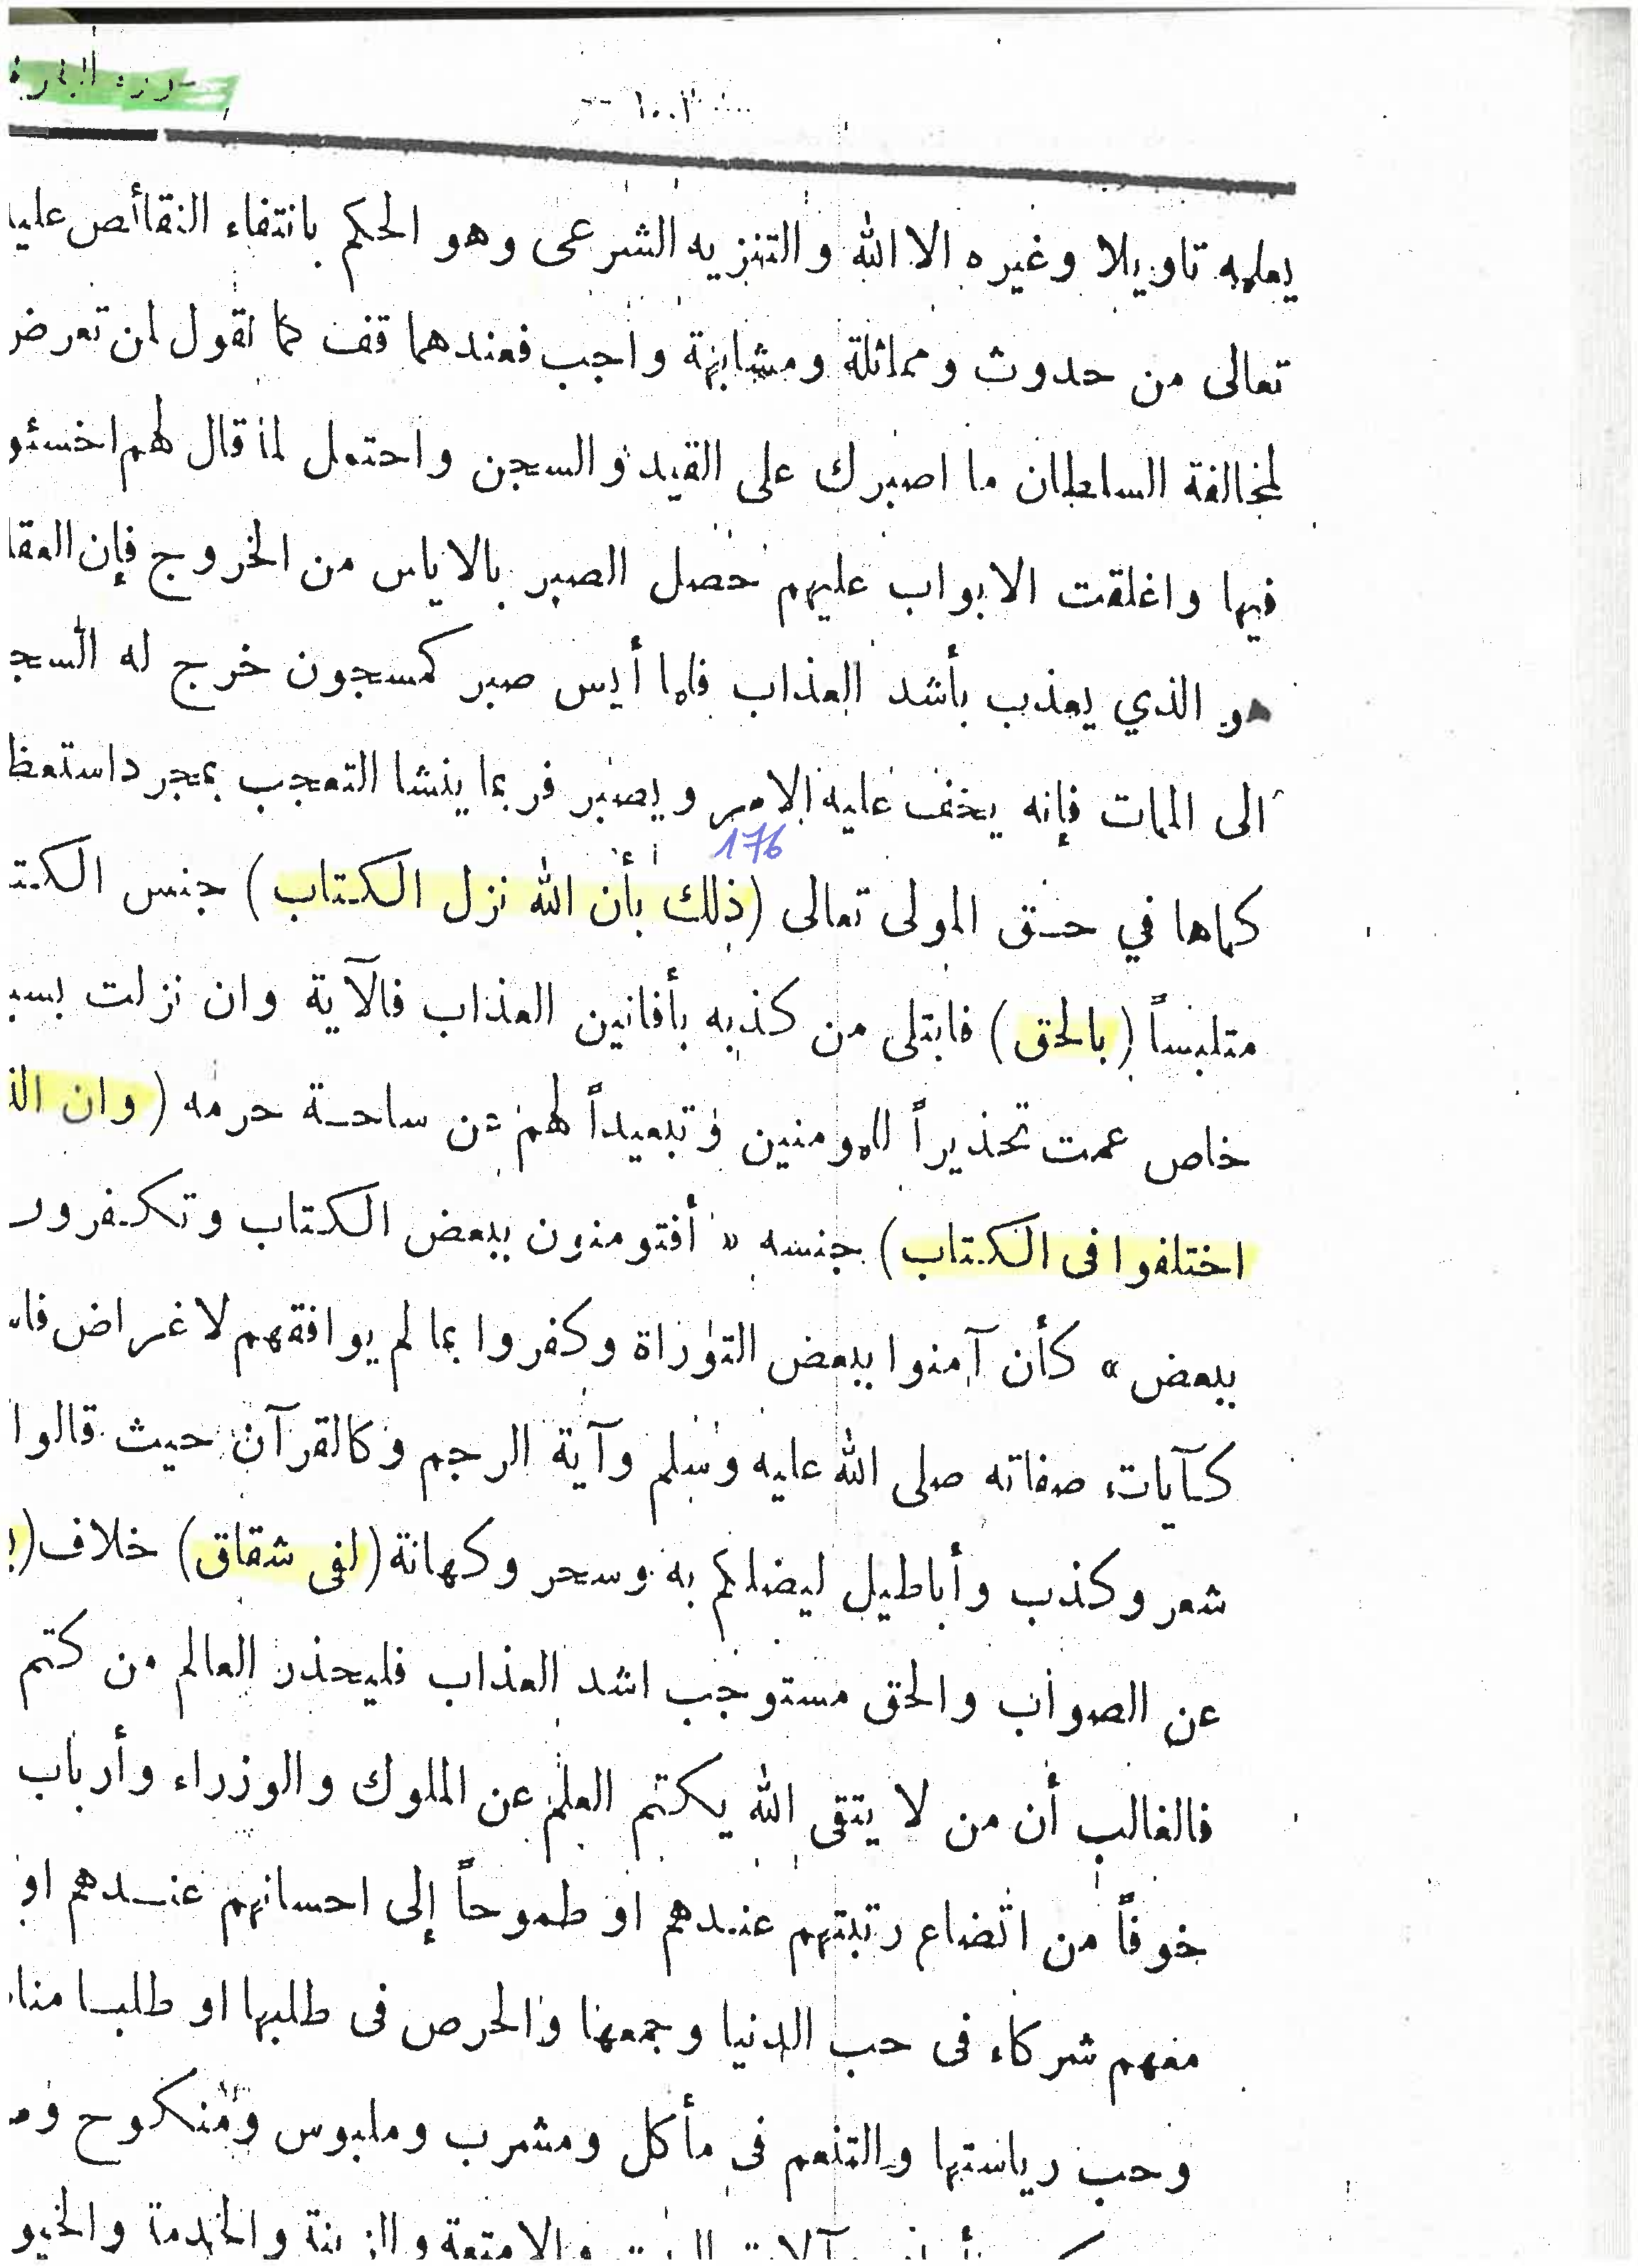 سورة البقرة
يعلمه تاويلا وغيره الا الله والتنزيه الشرعى وهو الحكم بانتفاء النقائص
تعالى من حدوث ومماثلة ومشابهة واجب فعندهما قف كما تقول لمن تعرض
لمخالفة السلطان ما اصبرك على القيد والسجن واحتمل لما قال لهم اخسئو
فيها واغلقت الابواب عليهم حصل الصبر بالاياس من الخروج فإن
هو الذي يعذب بأشد العذاب فلما أيس صبر كمسجون خرج له
الى الممات فإنه يخف عليه الامر ويصبر فربما ينشا التعجب بمجرد
176
كماها في حق المولى تعالى (ذلك بأن الله نزل الكتاب) جنس
متلبساً (بالحق) فابتلى من كذبه بأفانين العذاب فالآية وان نزلت
خاص عمت تحذيراً للمومنين وتبعيداً لهم عن ساحة حرمه (وان
اختلفوا فى الكتاب) جنسه « أفتومنون ببعض الكتاب وتكفرو
ببعض » كأن آمنوا ببعض التوراة وكفروا بما لم يوافقهم لاغراض
كآيات صفاته صلى الله عليه وسلم وآية الرجم وكالقرآن حيث قالوا
شعر وكذب وأباطيل ليضلكم به وسحر وكهانة (لفى شقاق) خلاف (
عن الصواب والحق مستوجب اشد العذاب فليحذر العالم من كتم
فالغالب أن من لا يتقى الله يكتم العلم عن الملوك والوزراء وأرباب
خوفاً من اتضاع رتبتهم عندهم او طموحاً إلى احسانهم عندهم او
مفهم شركاء فى حب الدنيا وجمعها والحرص فى طلبها او طلبا
وحب رياستها والتنعم فى مأكل ومشرب وملبوس ومنكوح
والامتعة والزينة والخدمة